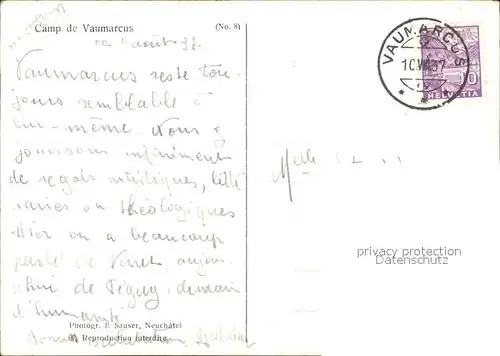 Camp de Vaumarcus
(No. 8)
août 37
Vaumarcus reste tou-
jours semblable à
lui-même. Nous y
jouissons infiniment
de regals artistiques, litté
raires ou théologiques
Hier on a beaucoup
parlé de Vinet, aujour
d'hui de Péguy, demain
d'humanité
Photogr. P. Sauser, Neuchâtel
Reproduction interdite.
VAUMARCUS
10 VIII 37
10
HELVETIA
Melle
privacy protection
Datenschutz